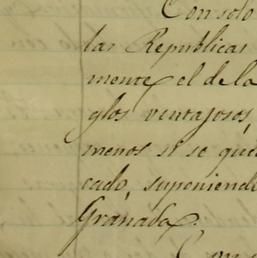 Con solo
las Republicas
mente el de la
glos ventajosos,
menos si se quie
cado, suponiend
Granada.
Con